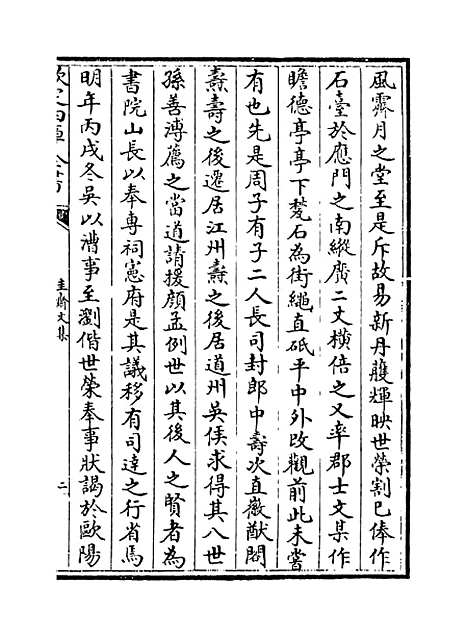 風霽月之堂至是斥故易新丹雘輝映世榮割已俸作
石臺於應門之南縱廣二丈橫倍之又率郡士文某作
瞻德亭亭下甃石為街繩直砥平中外改觀前此未嘗
有也先是周子有子二人長司封郎中壽次直徽猷閣
燾壽之後遷居江州燾之後居道州吳侯求得其八世
孫善溥薦之當道請援顔孟例世以其後人之賢者為
書院山長以奉專祠憲府是其議移有司達之行省焉
明年丙戌冬吳以漕事至瀏偕世榮奉事狀謁於歐陽
欽定四庫全書
圭齋文集
二